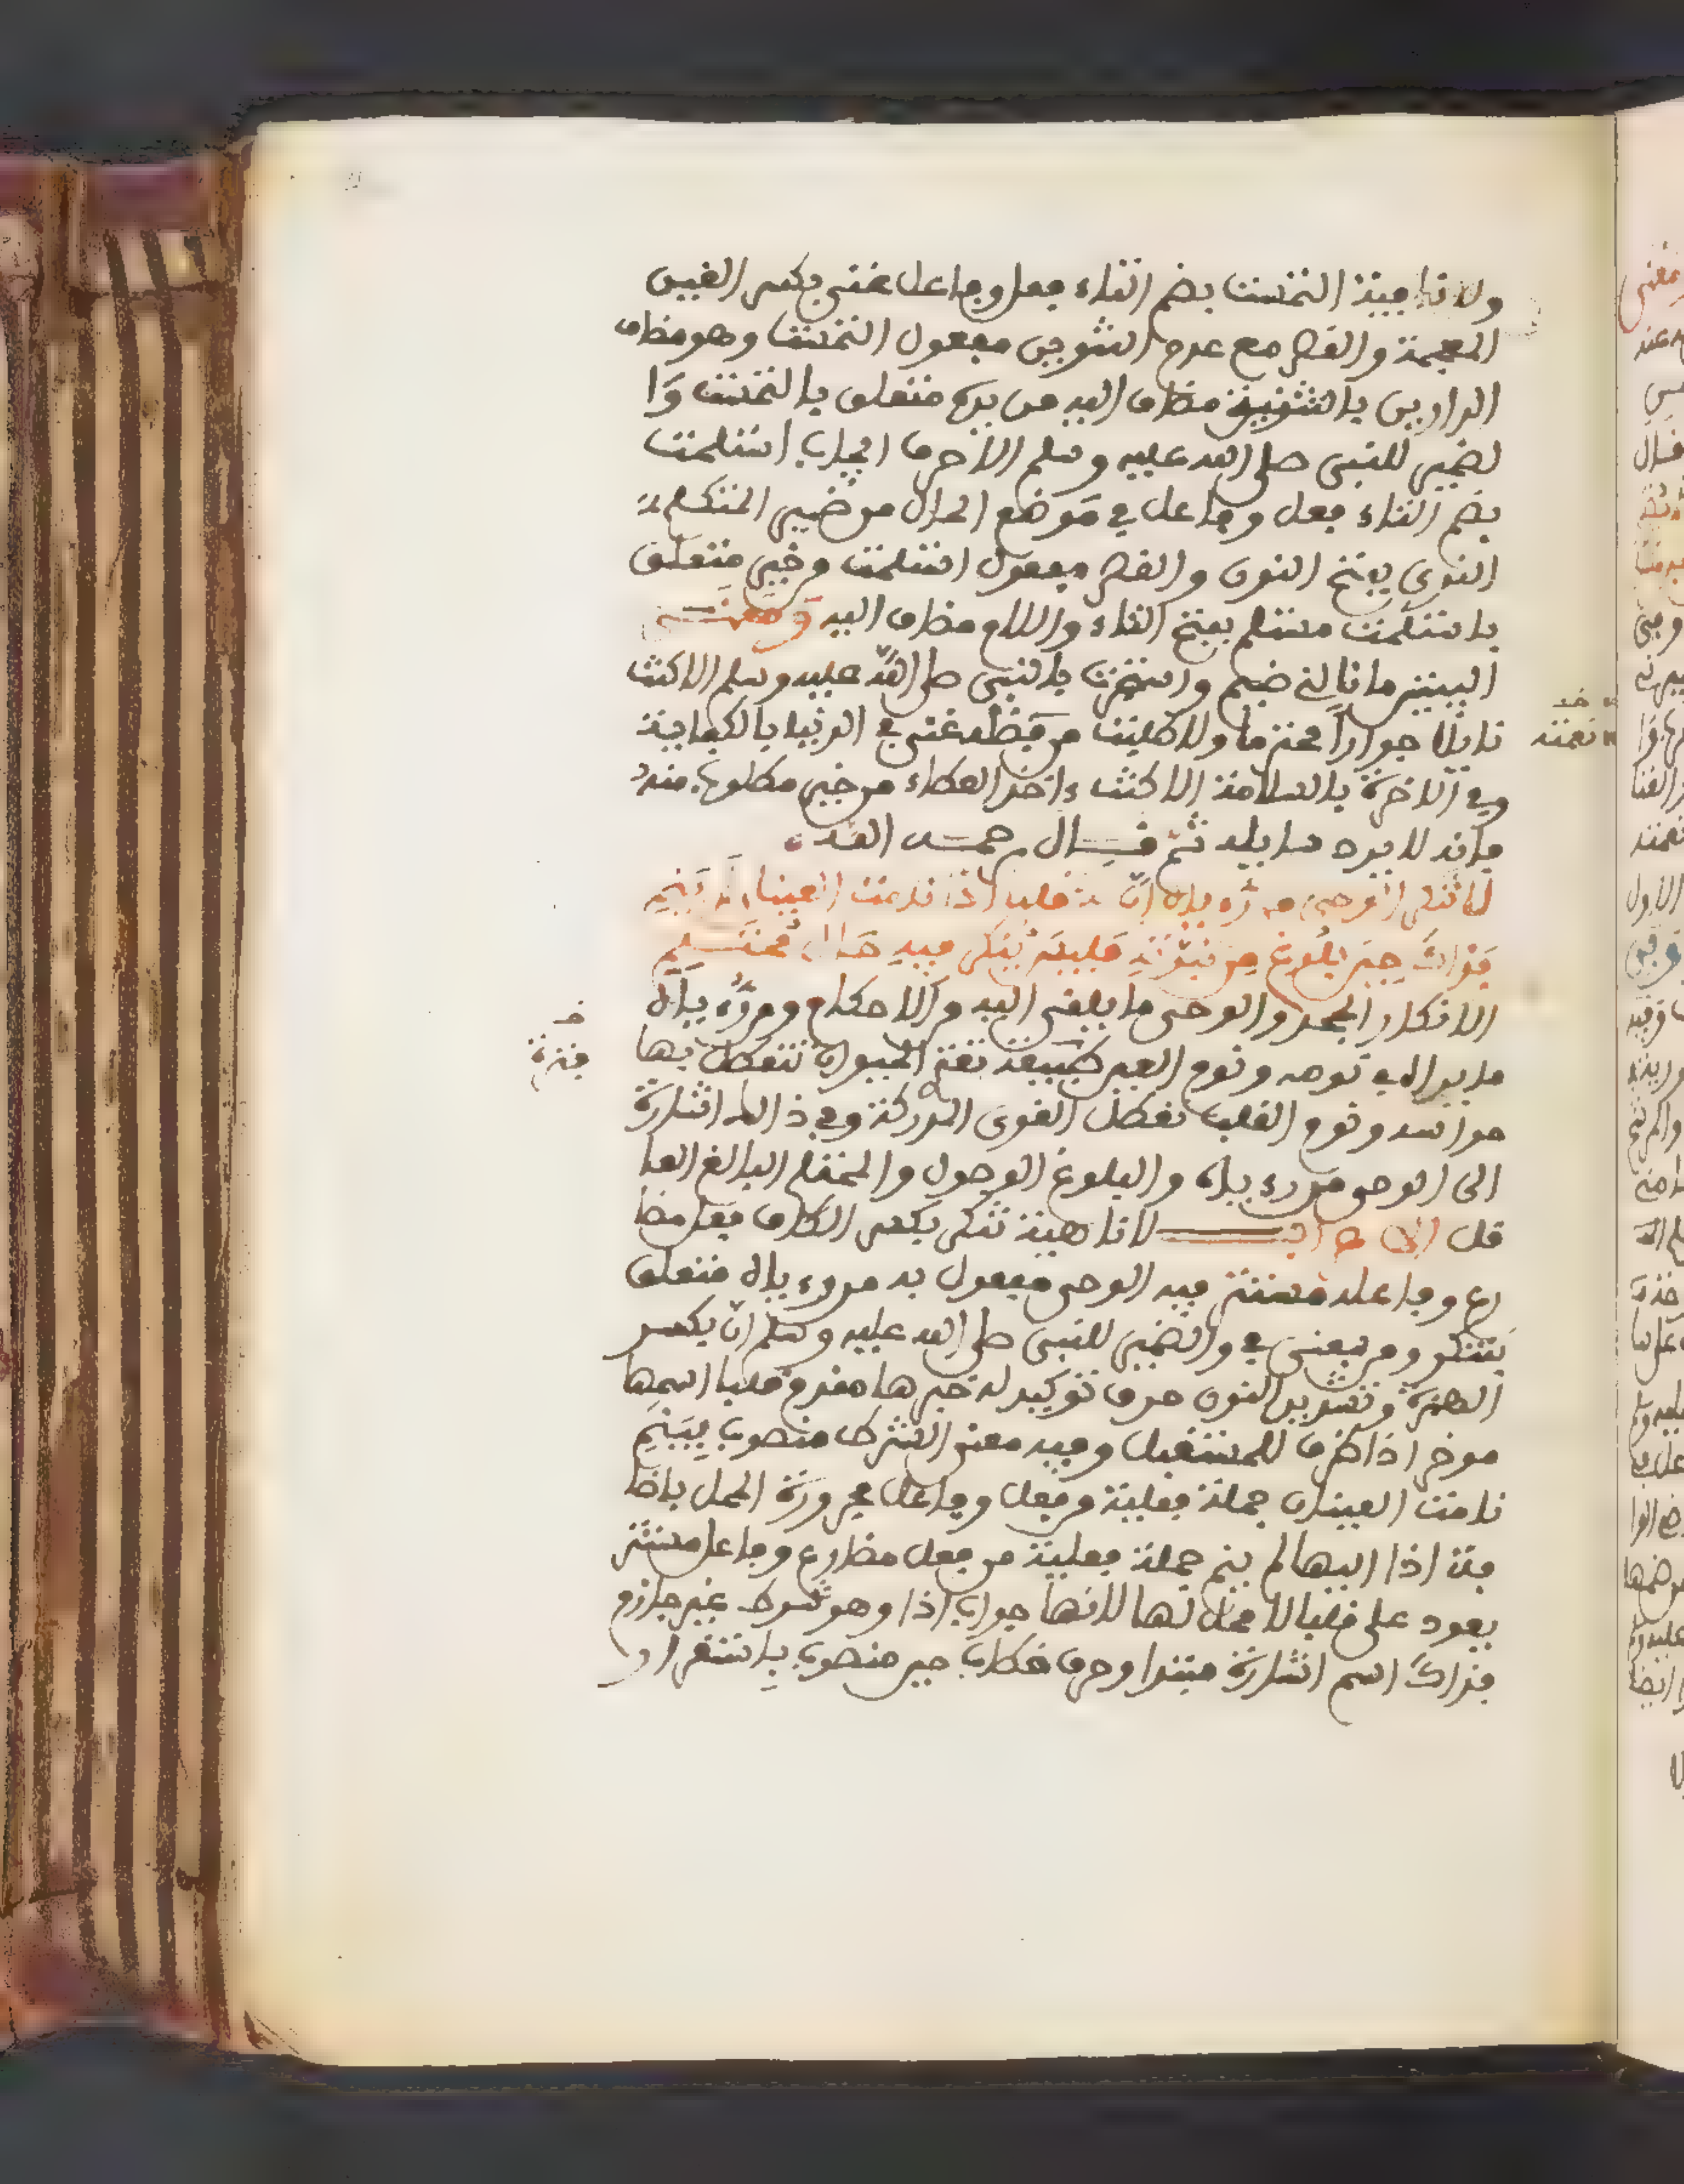 ولا نافية التمست بضم التاء فعل وفاعل غنى بكسر الغين
المعجمة والقصر مع عدم التنوين مفعول التمست وهو مضاف
الدارين بالتثنية مضاف اليه من يده متعلق بالتمست وا
لضمير للنبي صلى الله عليه وسلم الا حرف ايجاب استلمت
بضم التاء فعل وفاعل في موضع الحال من ضمير المتكلم
الندى بفتح النون والقصر مفعول استلمت وخير متعلق
باستلمت مستلم بفتح التاء واللام مضاف اليه ومعنى
البيتين ما نالني ضيم واستجرت بالنبي صلى الله عليه وسلم الا كنت
نايلا جوارا محترما ولا طلبت من فضله غنى في الدنيا بالكفاية
وفي الاخرة بالسلامة الا كنت ءاخذ العطاء من خير مطلوب منه
فانه لا يرد سايله ثم قال رحمه الله
لا تنكر الوحي من رءياه ان له قلبا اذا نامت العينان لم ينم
فذاك حين بلوغ من نبوته فليس ينكر فيه حال محتلم
الانكار الجحد والوحي ما يلقى اليه والاحكام ومن رءياه
ما يراه في نومه ونوم العين طبيعة تعتري الحيوان تتعطل بها
حواسه ونوم القلب تعطل القوى المدركة وفي ذلك اشارة
الى الوحي من رءياه والبلوغ الوصول والمحتلم البالغ العا
قل الاعراب لا ناهية تنكر بكسر الكاف فعل مضا
رع وفاعله مستتر فيه الوحي مفعول به من رءياه متعلق
بتنكر ومن بمعنى في والضمير للنبي صلى الله عليه وسلم ان بكسر
الهمزة وتشديد النون حرف توكيد له خبرها مقدم قلبا اسمها
موخر اذا ظرف للمستقبل وفيه معنى الشرط منصوب بينم
نامت العينان جملة فعلية من فعل وفاعل مجرورة المحل باضا
فة اذا اليها لم ينم جملة فعلية من فعل مضارع وفاعل مستتر
يعود على قلبا لا محل لها لانها جواب اذا وهو شرط غير جازم
فذاك اسم اشارة مبتدا وحرف خطاب حين منصوب باستقرار